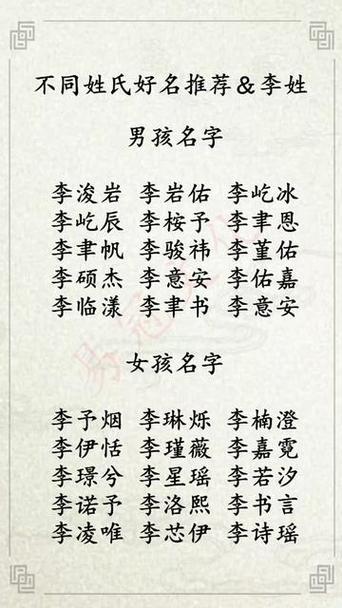 不同姓氏好名推荐&李姓
男孩名字
李浚岩 李岩佑 李屹冰
李屹辰 李桉予 李聿恩
李聿帆 李骏祎 李堇佑
李硕杰 李意安 李佑嘉
李临漾 李聿书 李意安
女孩名字
李予烟 李琳烁 李楠澄
李伊恬 李瑾薇 李嘉霓
李璟兮 李星瑶 李若汐
李诺予 李洛熙 李书言
李凌唯 李芯伊 李诗瑶